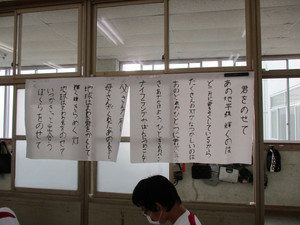 君をのせて
あの地平線 輝くのは
どこかに君をかくしているから
たくさんの灯がなつかしいのは
あのどれかひとつに君がいるから
さあでかけよう ひときれのパン
ナイフ ランプかばんにつめこんで
父さんが
母さんがくれたあのまなざし
地球はまわる君をかくして
輝く瞳 きらめく灯
地球はまわる君をのせて
いつかきっと出会う
ぼくらをのせて